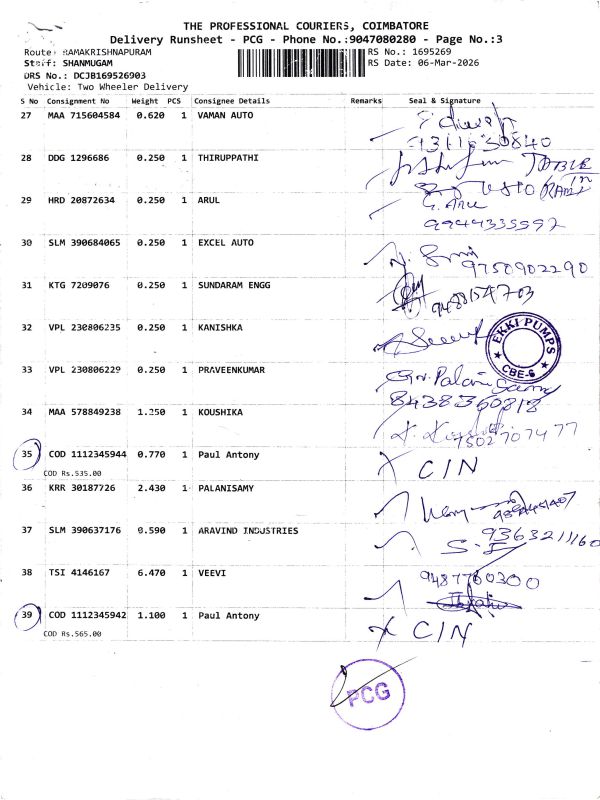 THE PROFESSIONAL COURIERS, COIMBATORE
Delivery Runsheet - PCG - Phone No.:9047080280 - Page No.:3
Route: RAMAKRISHNAPURAM
RS No.: 1695269
Staff: SHANMUGAM
RS Date: 06-Mar-2026
DRS No.: DCJB169526903
Vehicle: Two Wheeler Delivery
S No Consignment No Weight PCS Consignee Details Remarks Seal & Signature
27 MAA 715604584 0.620 1 VAMAN AUTO
28 DDG 1296686 0.250 1 THIRUPPATHI
29 HRD 20872634 0.250 1 ARUL
9944335592
30 SLM 390684065 0.250 1 EXCEL AUTO
9750902290
31 KTG 7209076 0.250 1 SUNDARAM ENGG
32 VPL 230806235 0.250 1 KANISHKA
EKKI PUMPS
CBE-6
33 VPL 230806229 0.250 1 PRAVEENKUMAR
8438360818
34 MAA 578849238 1.250 1 KOUSHIKA
7502707477
35 COD 1112345944 0.770 1 Paul Antony
X CIN
COD Rs.535.00
36 KRR 30187726 2.430 1 PALANISAMY
37 SLM 390637176 0.590 1 ARAVIND INDUSTRIES
38 TSI 4146167 6.470 1 VEEVI
9487760300
39 COD 1112345942 1.100 1 Paul Antony
X CIN
COD Rs.565.00
PCG